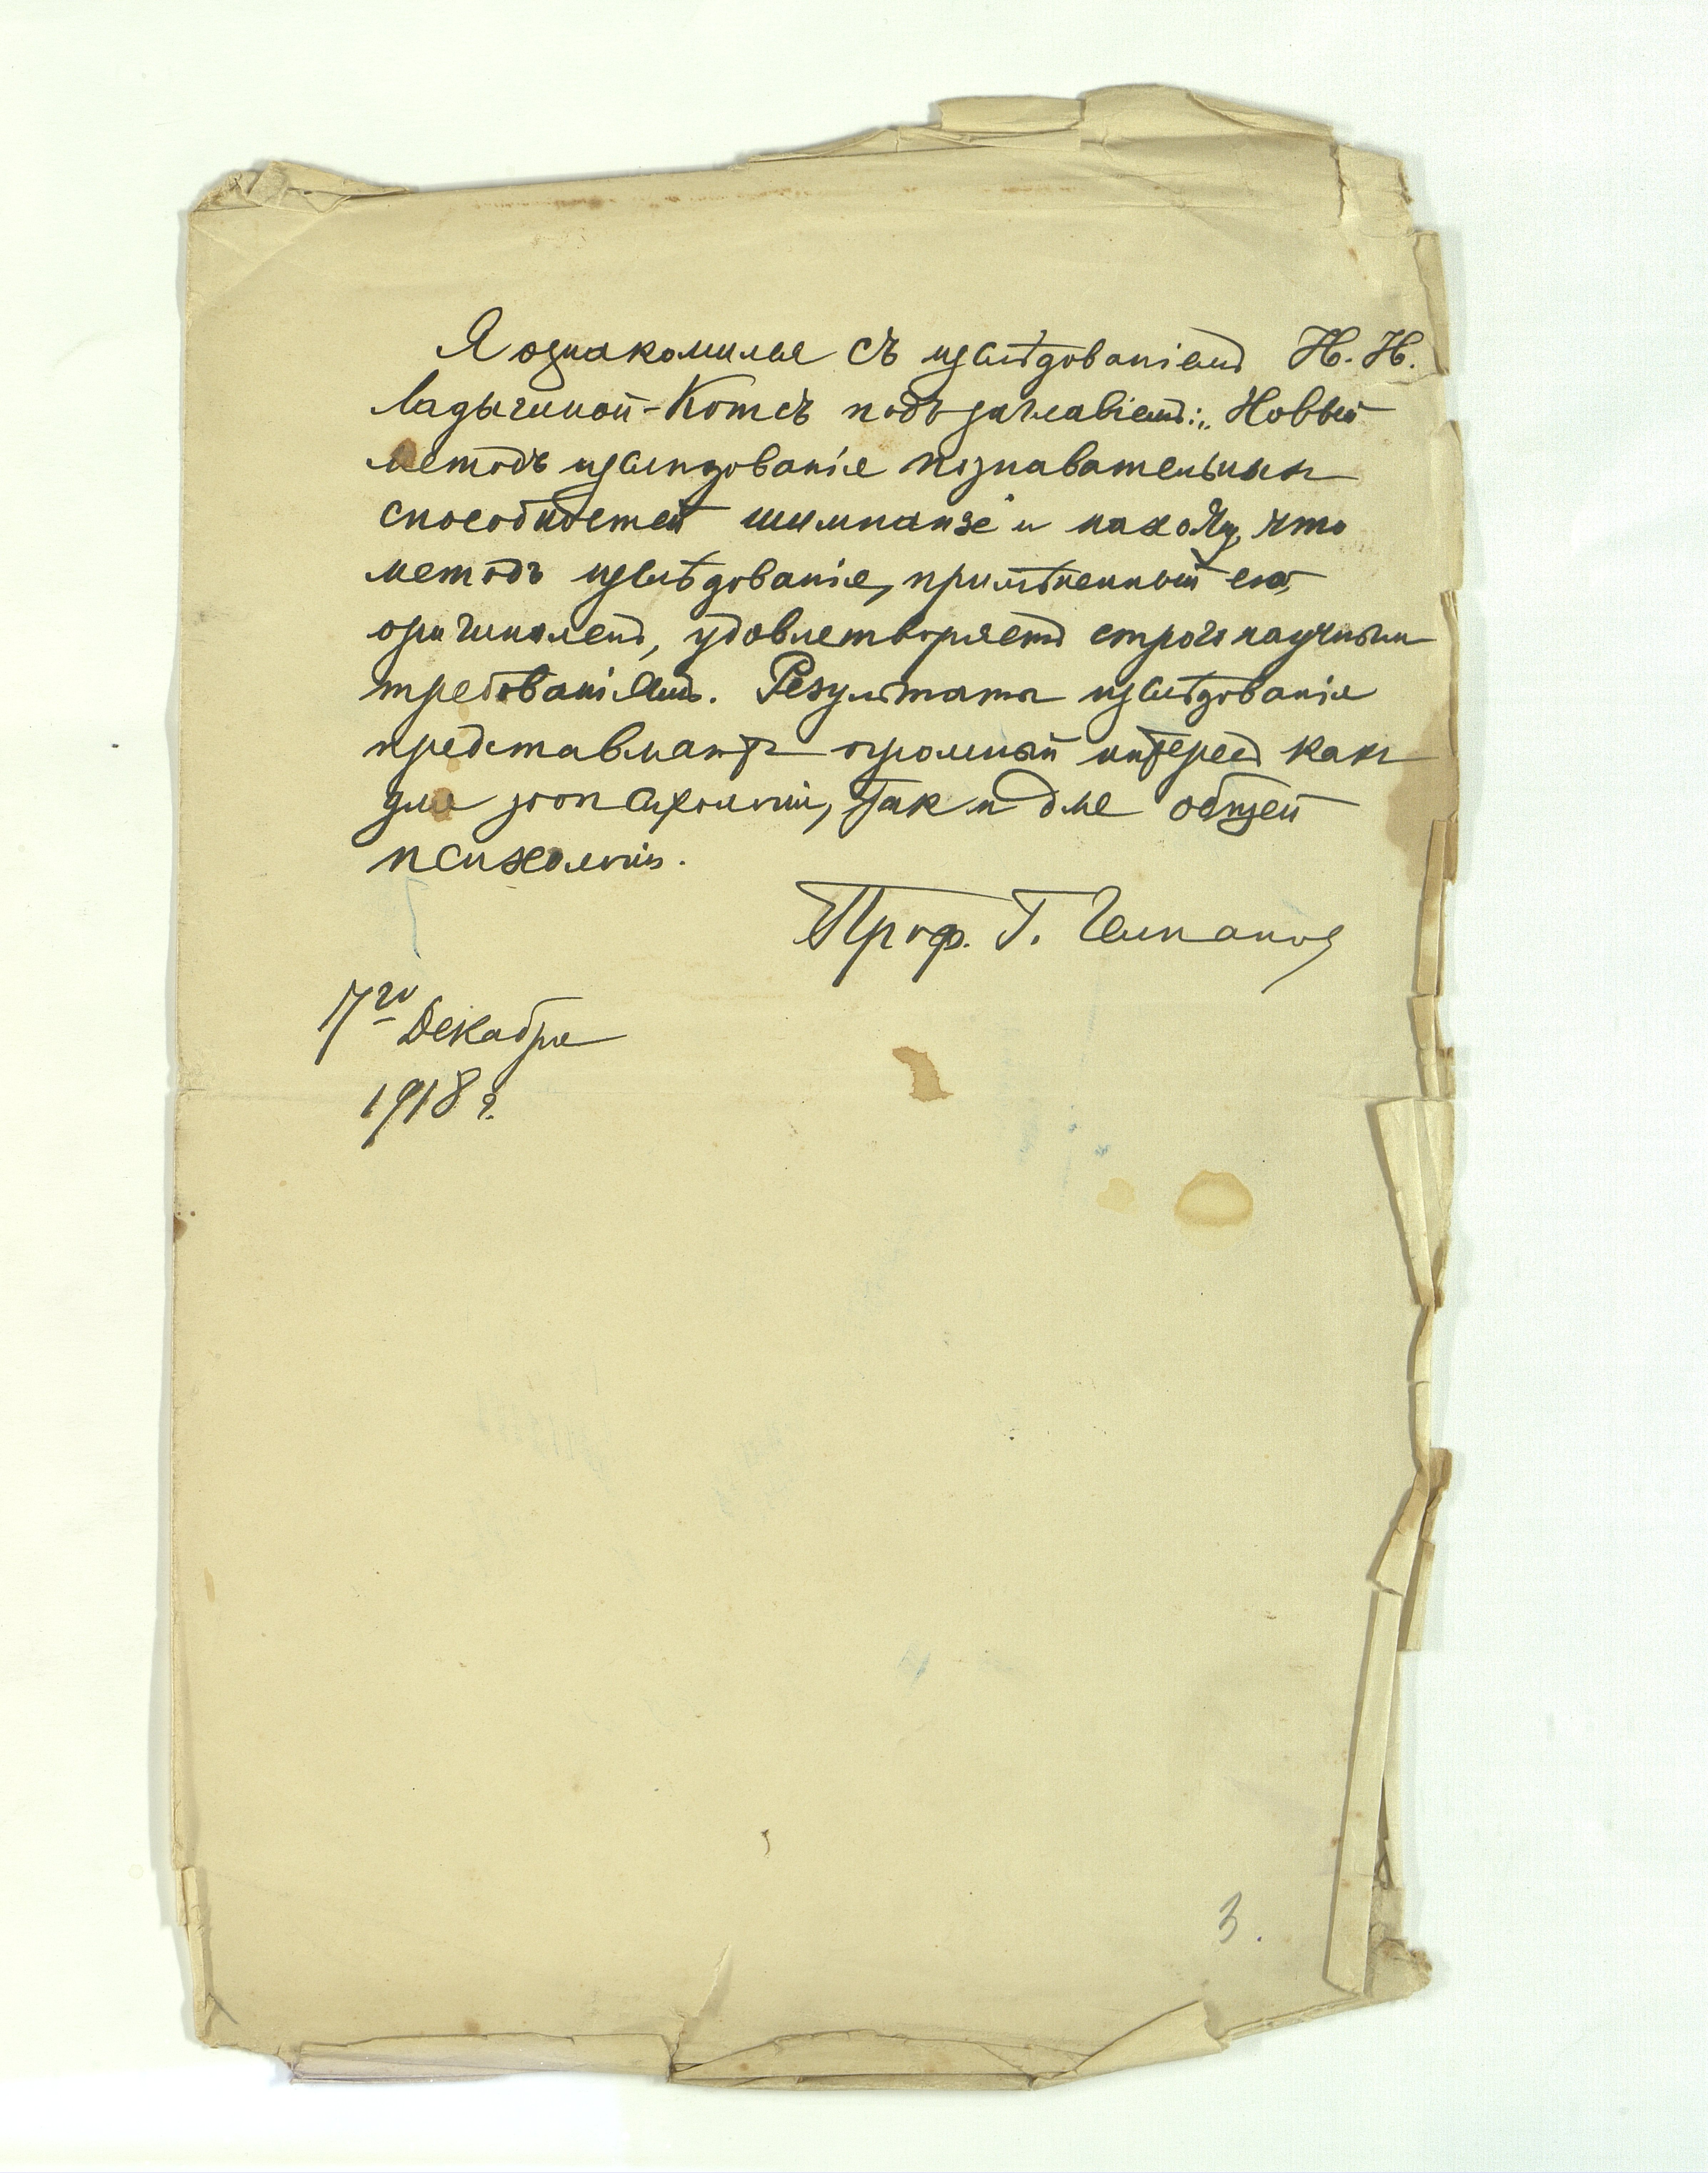 Я ознакомился съ изслѣдованіемъ Н. Н.
Ладыгиной-Котсъ подъ заглавіемъ: „Новый
методъ изслѣдованія познавательныхъ
способностей шимпанзе и нахожу, что
методъ изслѣдованія, примѣненный ею,
оригиналенъ, удовлетворяетъ строго научнымъ
требованіямъ. Результаты изслѣдованія
представляютъ огромный интересъ какъ
для зоопсихологіи, такъ и для общей
психологіи.
Проф. Г. Челпановъ
7го Декабря
1918 г.
3.